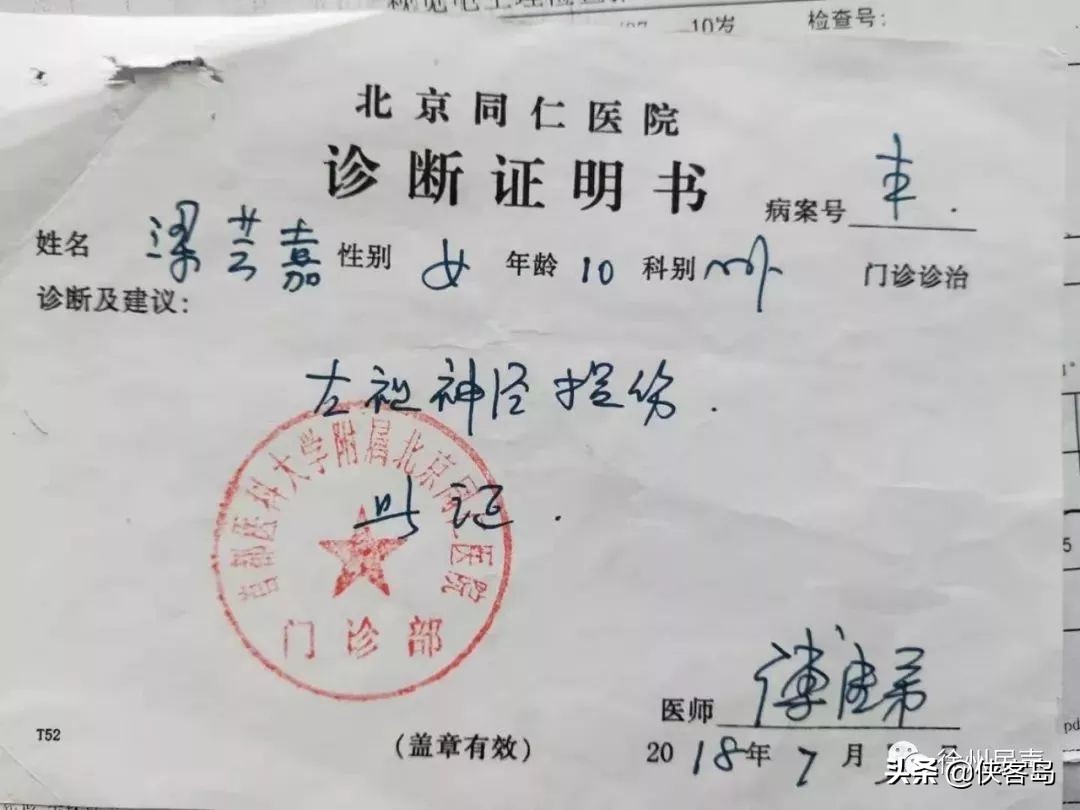 10岁 检查号:
北京同仁医院
诊断证明书
病案号
姓名 梁芸嘉 性别 女 年龄 10 科别 外 门诊诊治
诊断及建议:
左视神经损伤.
此证.
首都医科大学附属北京同仁医院
门诊部
医师
T52
(盖章有效)
2018年7月
头条@侠客岛